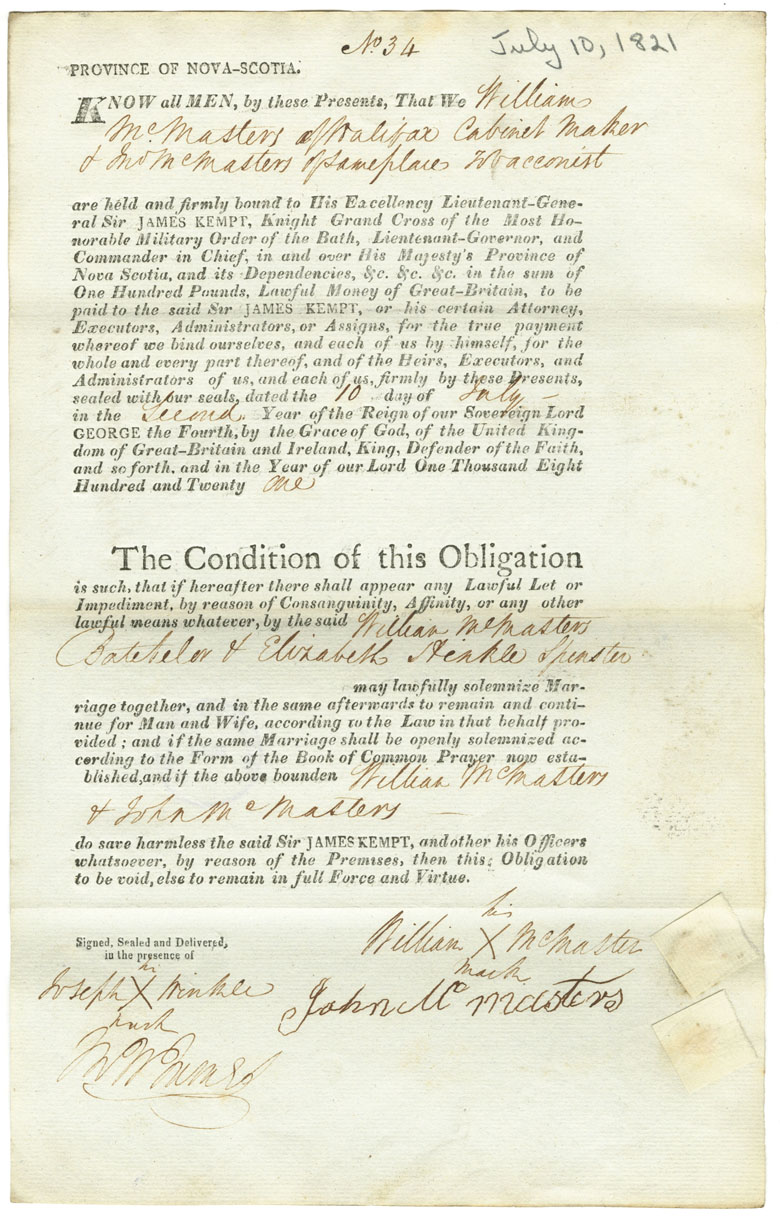 No 34
July 10, 1821
PROVINCE OF NOVA-SCOTIA.
KNOW all MEN, by these Presents, That We William
McMasters of Halifax Cabinet Maker
& Jno McMasters of same place Tobacconist
are held and firmly bound to His Excellency Lieutenant-Gene-
ral Sir JAMES KEMPT, Knight Grand Cross of the Most Ho-
norable Military Order of the Bath, Lieutenant-Governor, and
Commander in Chief, in and over His Majesty's Province of
Nova Scotia, and its Dependencies, &c. &c. &c. in the sum of
One Hundred Pounds, Lawful Money of Great-Britain, to be
paid to the said Sir JAMES KEMPT, or his certain Attorney,
Executors, Administrators, or Assigns, for the true payment
whereof we bind ourselves, and each of us by himself, for the
whole and every part thereof, and of the Heirs, Executors, and
Administrators of us, and each of us, firmly by these Presents,
sealed with our seals, dated the 10 day of July
in the Second Year of the Reign of our Sovereign Lord
GEORGE the Fourth, by the Grace of God, of the United King-
dom of Great-Britain and Ireland, King, Defender of the Faith,
and so forth, and in the Year of our Lord One Thousand Eight
Hundred and Twenty one
The Condition of this Obligation
is such, that if hereafter there shall appear any Lawful Let or
Impediment, by reason of Consanguinity, Affinity, or any other
lawful means whatever, by the said William McMasters
Batchelor & Elizabeth Hinkle Spinster
may lawfully solemnize Mar-
riage together, and in the same afterwards to remain and conti-
nue for Man and Wife, according to the Law in that behalf pro-
vided; and if the same Marriage shall be openly solemnized ac-
cording to the Form of the Book of Common Prayer now esta-
blished, and if the above bounden William McMasters
& John McMasters
do save harmless the said Sir JAMES KEMPT, and other his Officers
whatsoever, by reason of the Premises, then this Obligation
to be void, else to remain in full Force and Virtue.
Signed, Sealed and Delivered,
in the presence of
his
William X McMaster
mark
John McMasters
his
Joseph X Winkle
mark